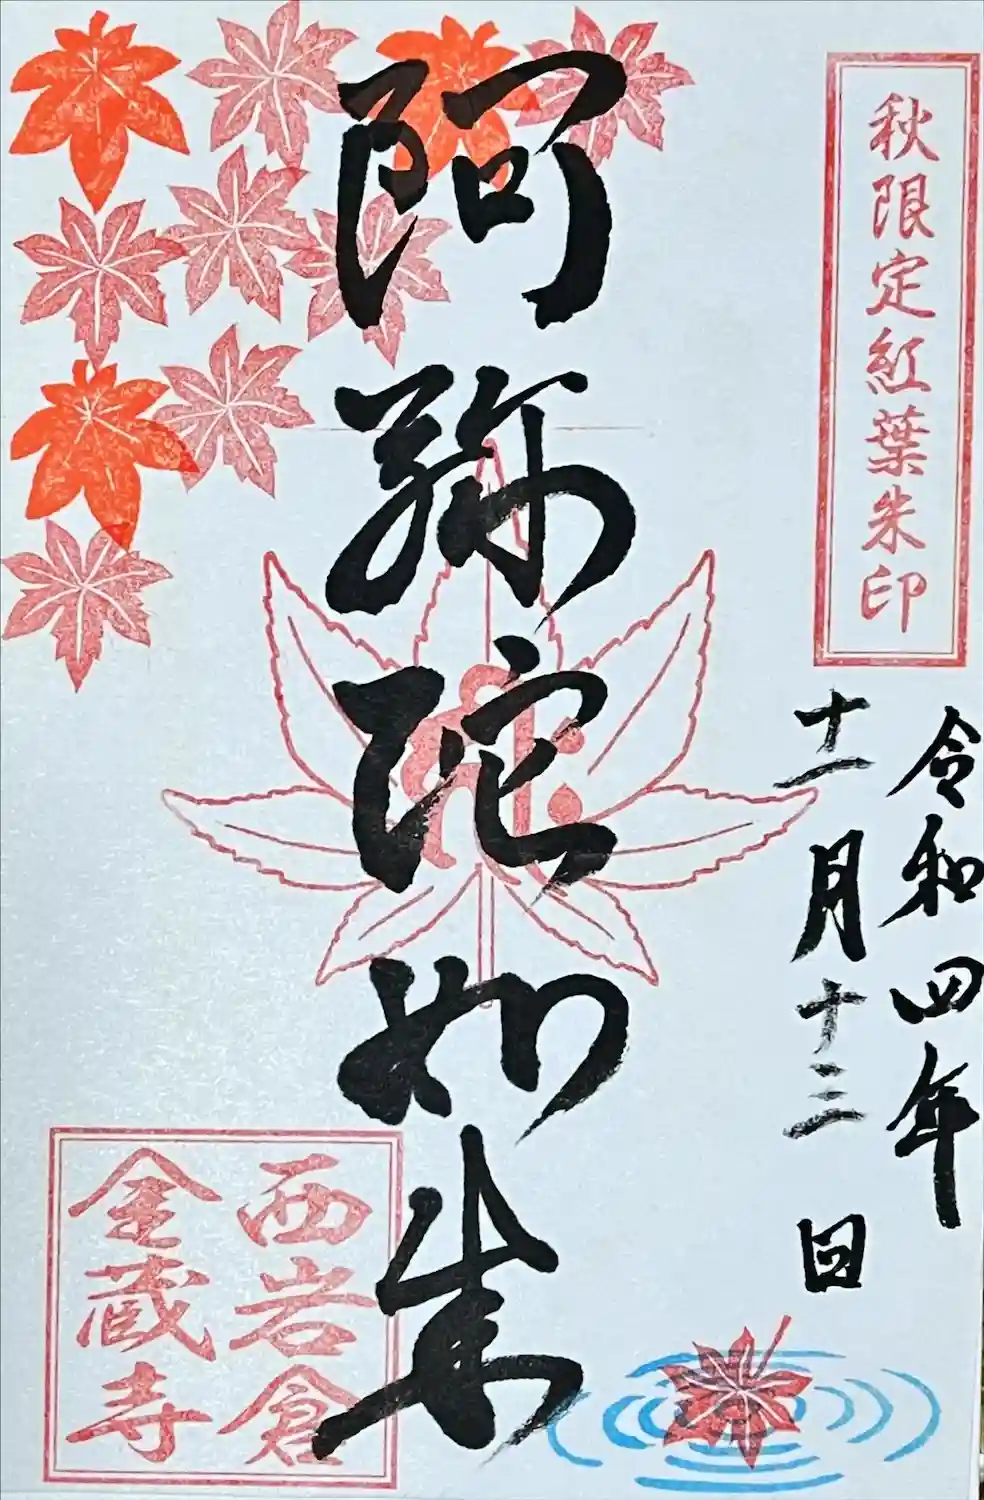 秋限定紅葉朱印
令和四年
十一月十三日
阿弥陀如来
西岩倉
金蔵寺